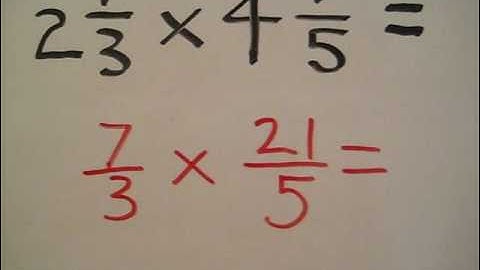 2 1/3 × 4 1/5 =
7/3 × 21/5 =